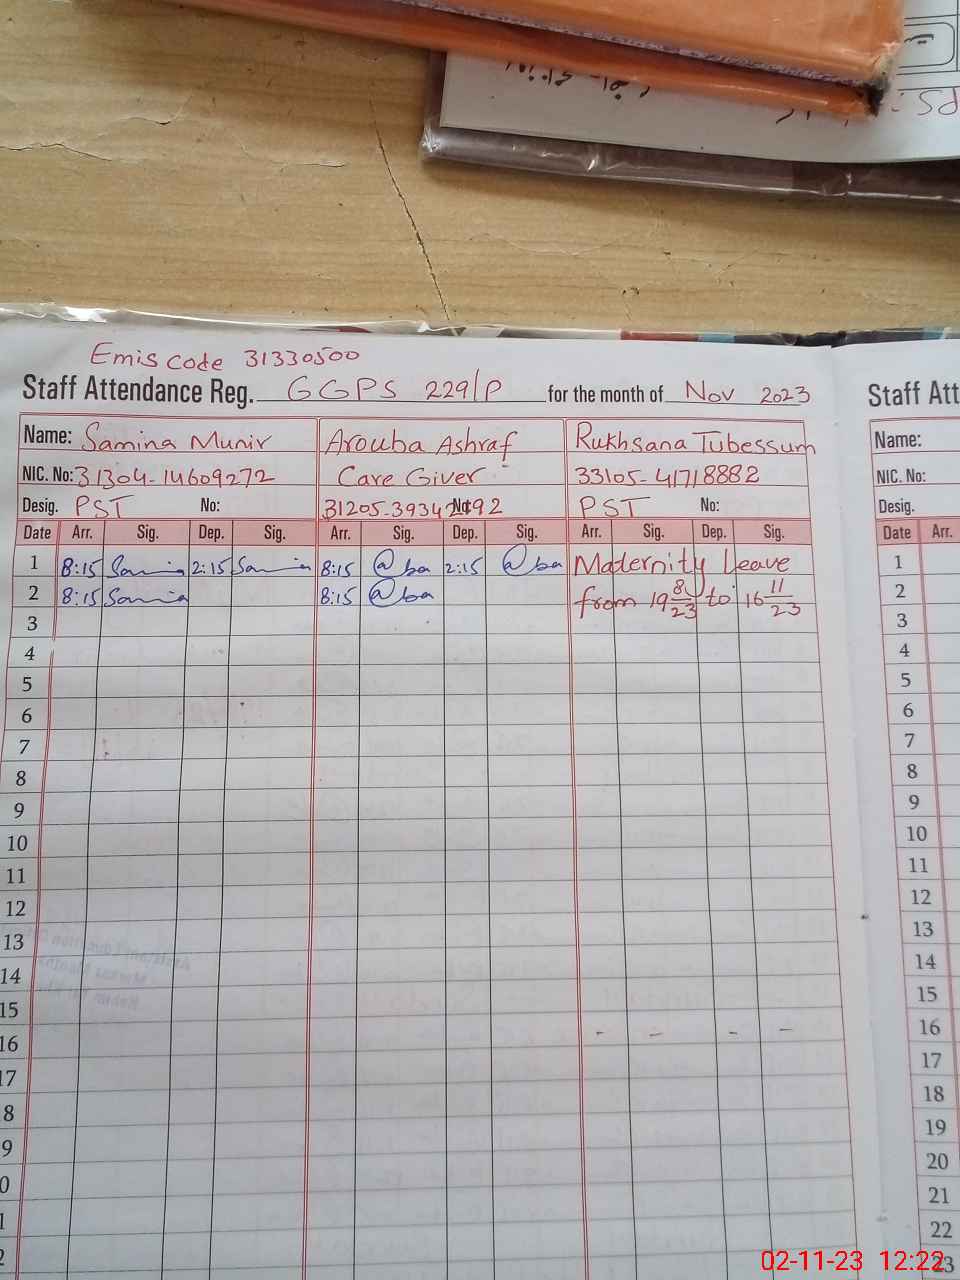 PS:
Emis code 31330500
Staff Attendance Reg. GGPS 229/P for the month of Nov 2023
Name: Samina Munir Arouba Ashraf Rukhsana Tubessum
NIC. No: 31304-14609272 Care Giver 33105-41718882
Desig. PST No: No: PST No:
Date Arr. Sig. Dep. Sig. Arr. Sig. Dep. Sig. Arr. Sig. Dep. Sig.
1 8:15 Samina 2:15 Samina 8:15 @ba 2:15 @ba Maternity Leave
2 8:15 Samina 8:15 @ba from 19 8/23 to 16 11/23
3
4
5
6
7
8
9
10
11
12
13
14
15
16 - - - -
17
8
9
0
1
2
Staff Att
Name:
NIC. No:
Desig.
Date Arr.
1
2
3
4
5
6
7
8
9
10
11
12
13
14
15
16
17
18
19
20
21
22
23
02-11-23 12:22